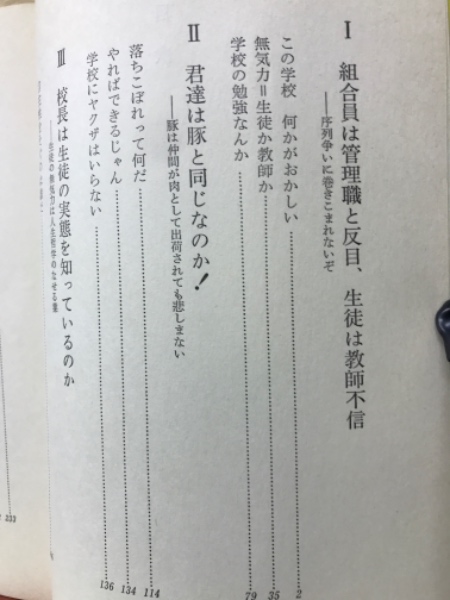 Ⅰ 組合員は管理職と反目、生徒は教師不信
――序列争いに巻きこまれないぞ
この学校 何かがおかしい……2
無気力＝生徒か教師か……35
学校の勉強なんか……79
Ⅱ 君達は豚と同じなのか！
――豚は仲間が肉として出荷されても悲しまない
落ちこぼれって何だ……114
やればできるじゃん……134
学校にヤクザはいらない……136
Ⅲ 校長は生徒の実態を知っているのか
――生徒の無気力は人生哲学のなせる業
233